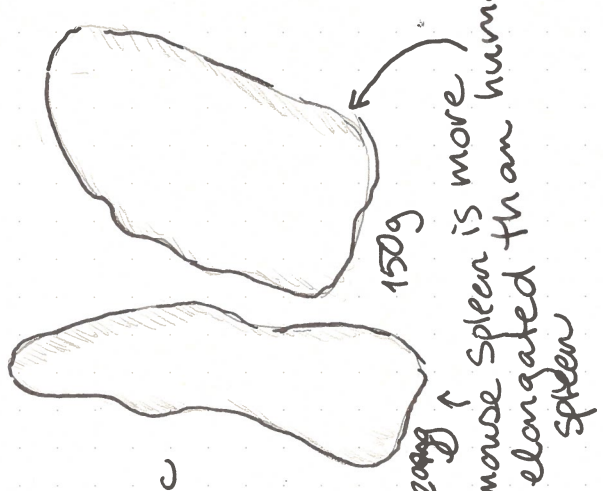 150g
mouse spleen is more
elongated than
spleen